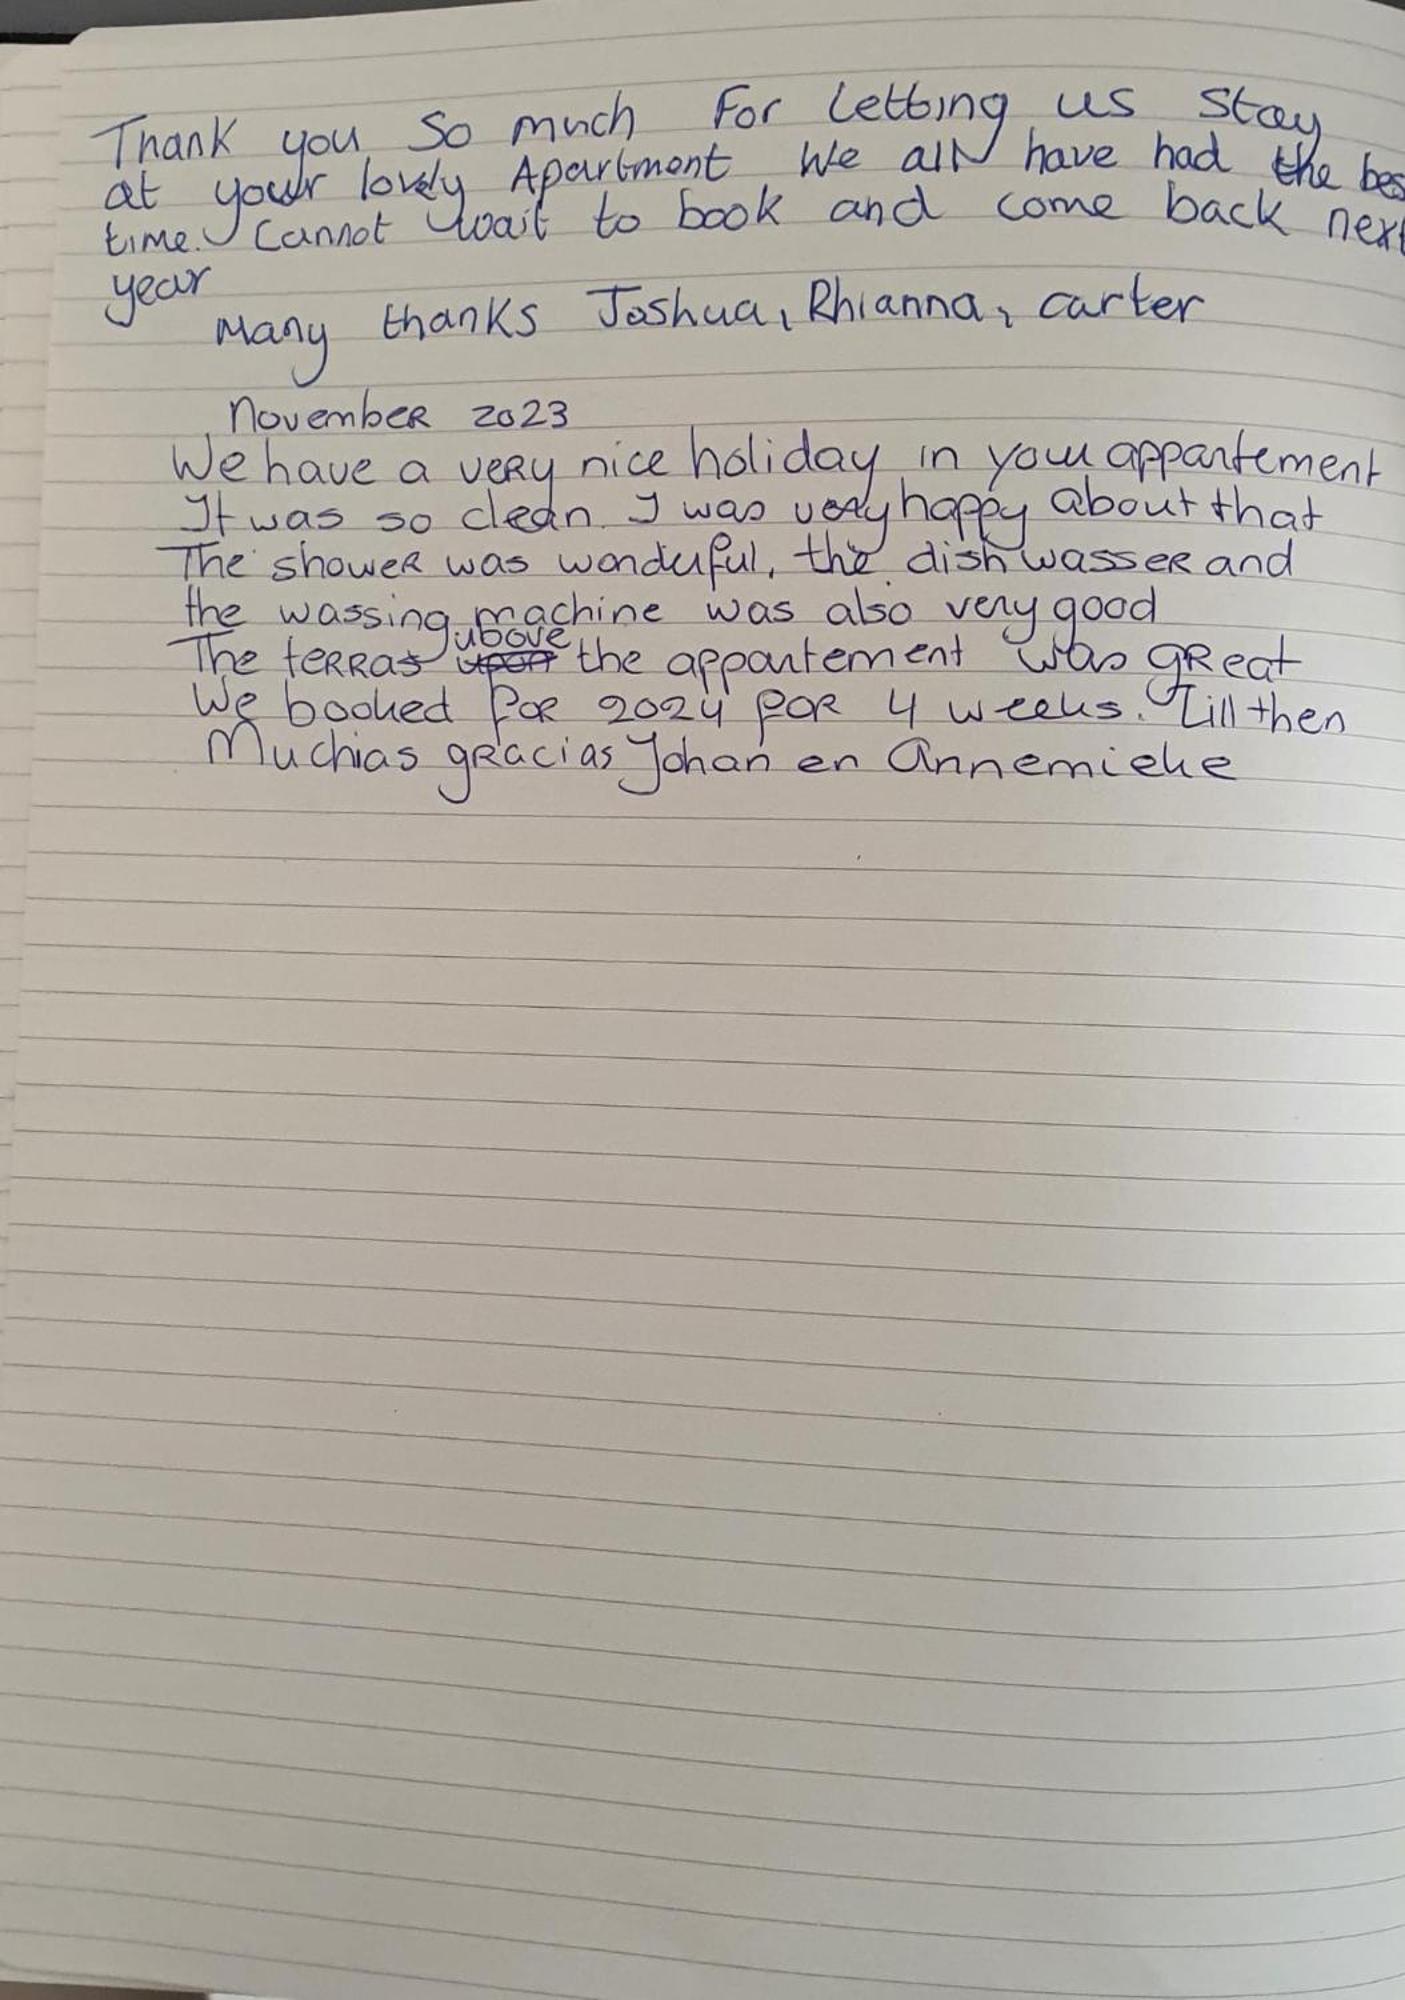 Thank you So much For Letting us Stay
at your lovely Apartment We all have had the bes
time. Cannot wait to book and come back next
year
Many thanks Joshua, Rhianna, carter
November 2023
We have a very nice holiday in your appartement
It was so clean. I was very happy about that
The shower was wonderful, the dishwasser and
the wassing machine was also very good
above
The terras upon the appartement was great
We booked for 2024 for 4 weeks. Till then
Muchias gracias Johan en Annemieke